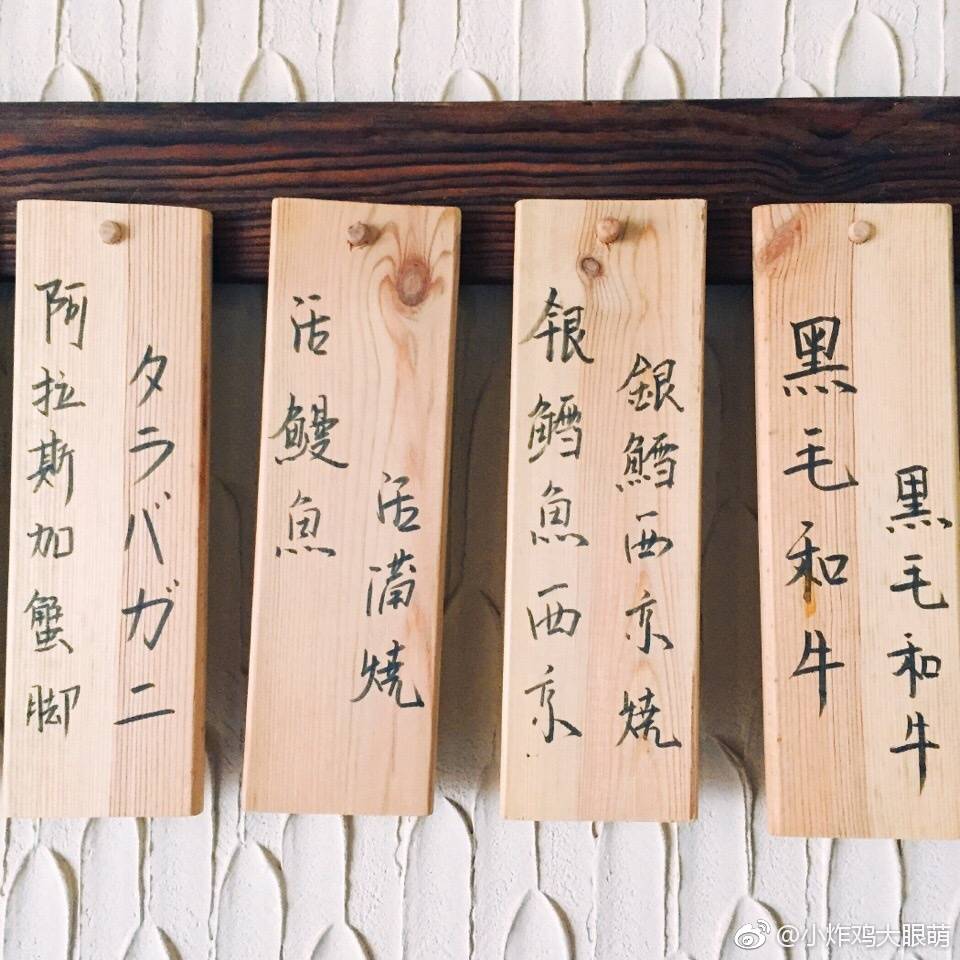 阿拉斯加蟹脚
タラバガニ
活鰻魚
活蒲焼
银鱈魚西京
銀鱈西京焼
黑毛和牛
黒毛和牛
@小炸鸡大眼萌